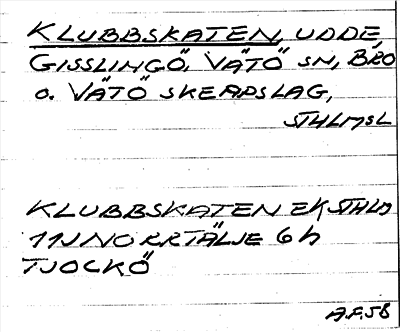 KLUBBSKATEN, UDDE,
GISSLINGÖ, VÄTÖ SN, BRO
O. VÄTÖ SKEPPSLAG,
STHLMSL
KLUBBSKATEN EK STHLM
11J NORRTÄLJE 6h
TJOCKÖ
A.F. 58